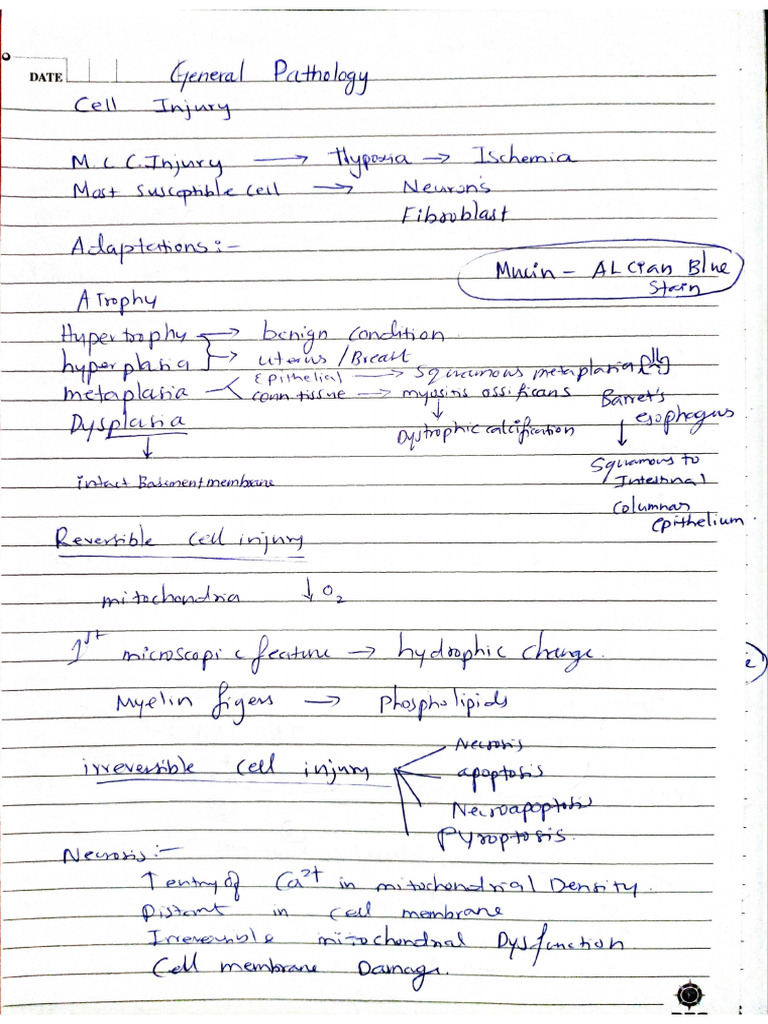 DATE
General Pathology
Cell Injury
M.C.C. Injury → Hypoxia → Ischemia
Most susceptible cell → Neurons
Fibroblast
Adaptations:-
Mucin - ALCian Blue
Stain
ATrophy
Hypertrophy → benign condition
hyperplasia → uterus / Breast
metaplasia Epithelial → Squamous metaplasia
conn tissue → myositis ossificans
Dysplasia
Dystrophic calcification
Barret's
esophagus
↓
Squamous to
Intestinal
Columnar
epithelium
↓
intact Basement membrane
Reversible cell injury
mitochondria ↓ O2
1st microscopic feature → hydrophic change.
Myelin figers → phospholipids
irreversible cell injury
Necrosis
apoptosis
Necroapoptosis
PYroptosis.
Necrosis:-
↑ entry of Ca2+ in mitochondrial Density.
Distant in cell membrane
Irreversible mitochondrial Dysfunction
Cell membrane Damage.